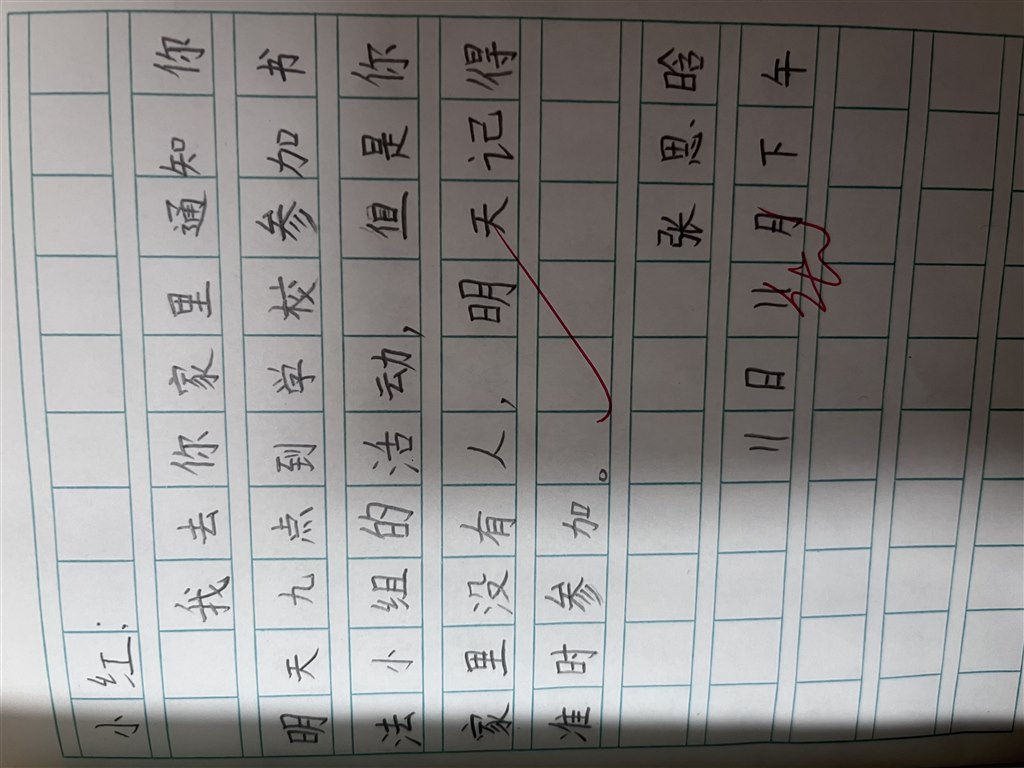 小红:
我去你家里通知你
明天九点到学校参加书
法小组的活动,但是你
家里没有人,明天记得
准时参加。
张思晗
二日月下午